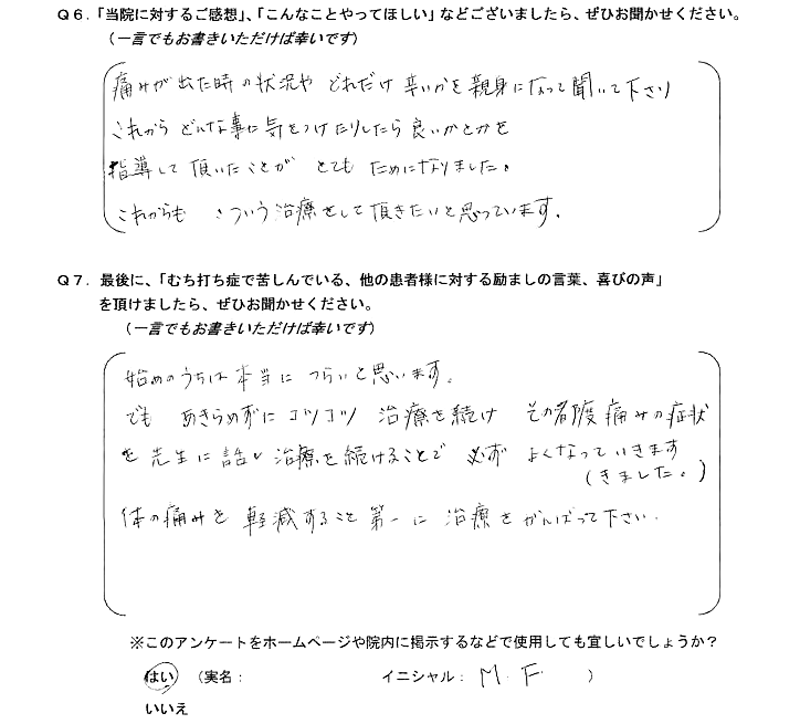 Ｑ６．「当院に対するご感想」、「こんなことやってほしい」などございましたら、ぜひお聞かせください。
（一言でもお書きいただけば幸いです）
痛みが出た時の状況や どれだけ辛いかを親身になって聞いて下さり
これから どんな事に気をつけたりしたら良いかとかを
指導して頂いたことが とても ためになりました。
これからも そういう治療をして頂きたいと思っています。
Ｑ７．最後に、「むち打ち症で苦しんでいる、他の患者様に対する励ましの言葉、喜びの声」
を頂けましたら、ぜひお聞かせください。
（一言でもお書きいただけば幸いです）
始めのうちは本当に つらいと思います。
でも あきらめずにコツコツ 治療を続け その都度痛みの症状
を先生に話し治療を続けることで 必ず よくなっていきます
（きました。）
体の痛みを軽減すること第一に治療をがんばって下さい。
※このアンケートをホームページや院内に掲示するなどで使用しても宜しいでしょうか？
はい （実名： イニシャル： M. F ）
いいえ